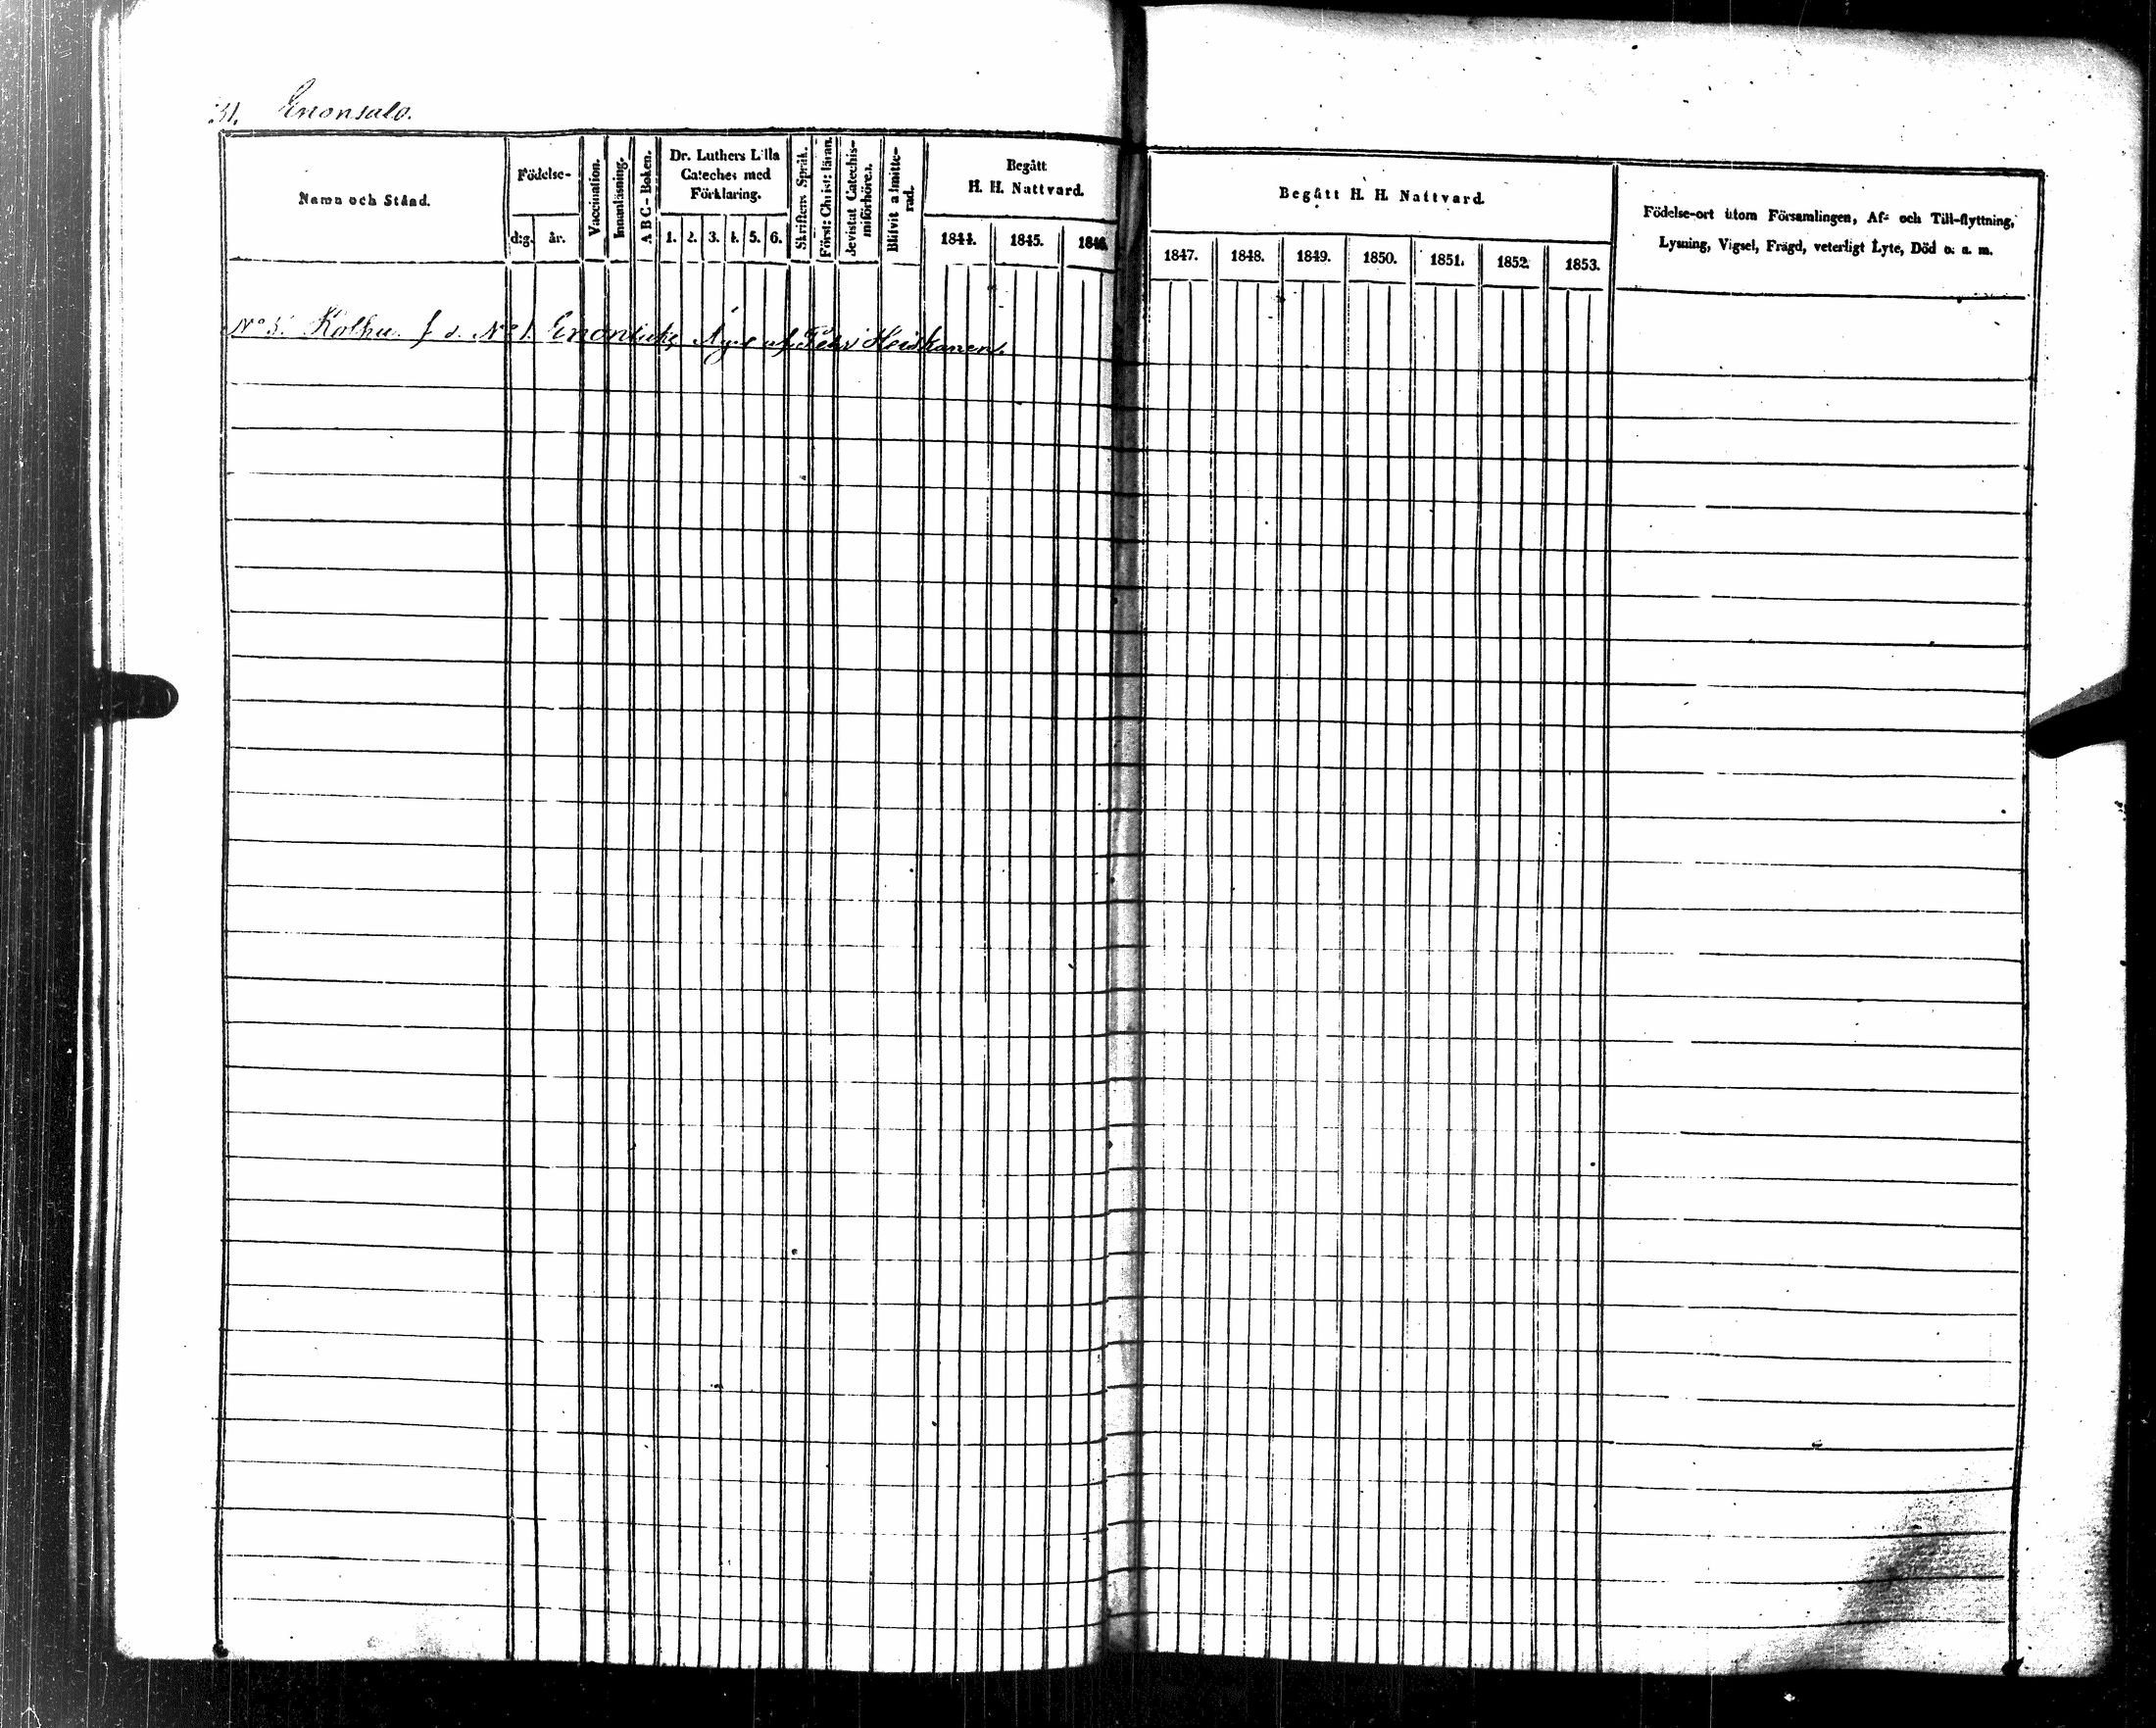 31. Enonsalo.
Namn och Stånd.
Födelse-
d:g. år.
Vaccination.
Innanläsning.
A B C-Boken.
Dr. Luthers Lilla
Cateches med
Förklaring.
1. 2. 3. 4. 5. 6.
Skriftens Språk.
Först: Christ: läran.
Bevistat Catechis-
miförhören.
Blifvit admitte-
rad.
Begått
H. H. Nattvard.
1844. 1845. 1846.
Begått H. H. Nattvard.
1847. 1848. 1849. 1850. 1851. 1852. 1853.
Födelse-ort utom Församlingen, Af- och Till-flyttning,
Lysning, Vigsel, Frägd, veterligt Lyte, Död o. a. m.
No 5. Kolhu f. d. No 1. af Petri Heiskanen.